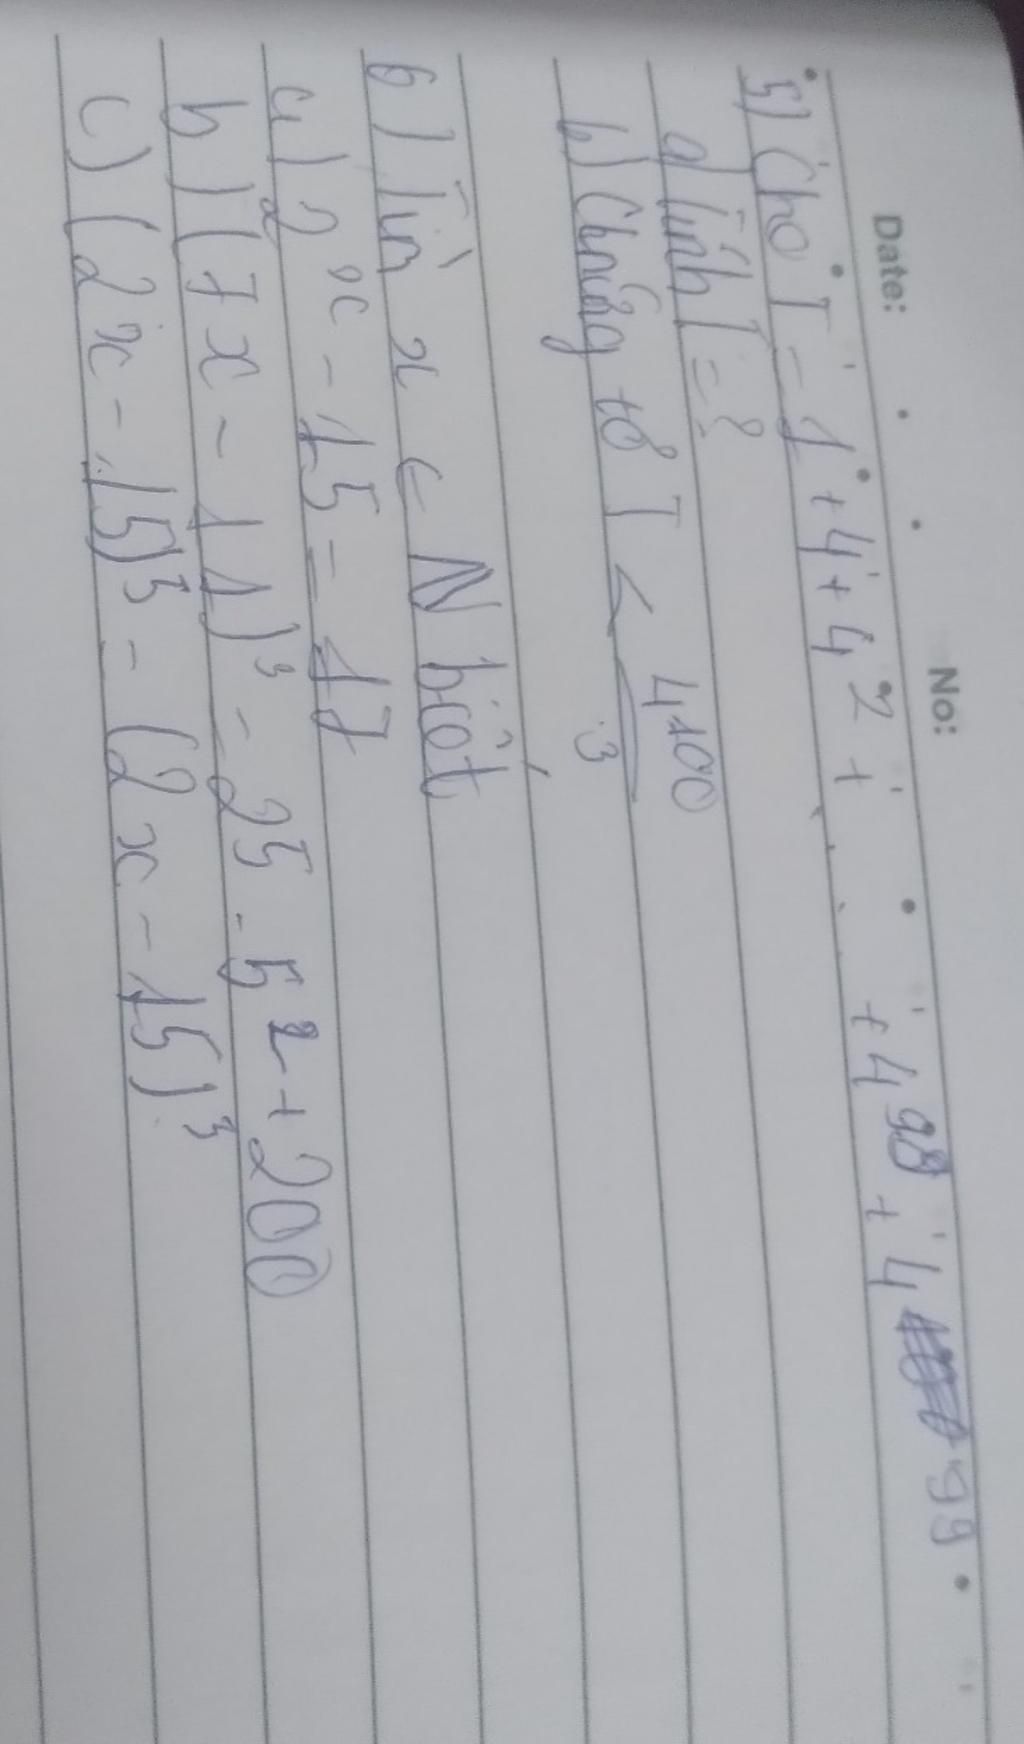 Date: No:
5) Cho T = 1 + 4 + 4² + ... + 4⁹⁸ + 4⁹⁹
a) Tính T = ?
b) Chứng tỏ T < 4¹⁰⁰/3
6) Tìm x ∈ N biết
a) 2ˣ - 15 = 17
b) (7x - 11)³ = 2⁵ . 5² + 200
c) (2x - 15)⁵ = (2x - 15)³